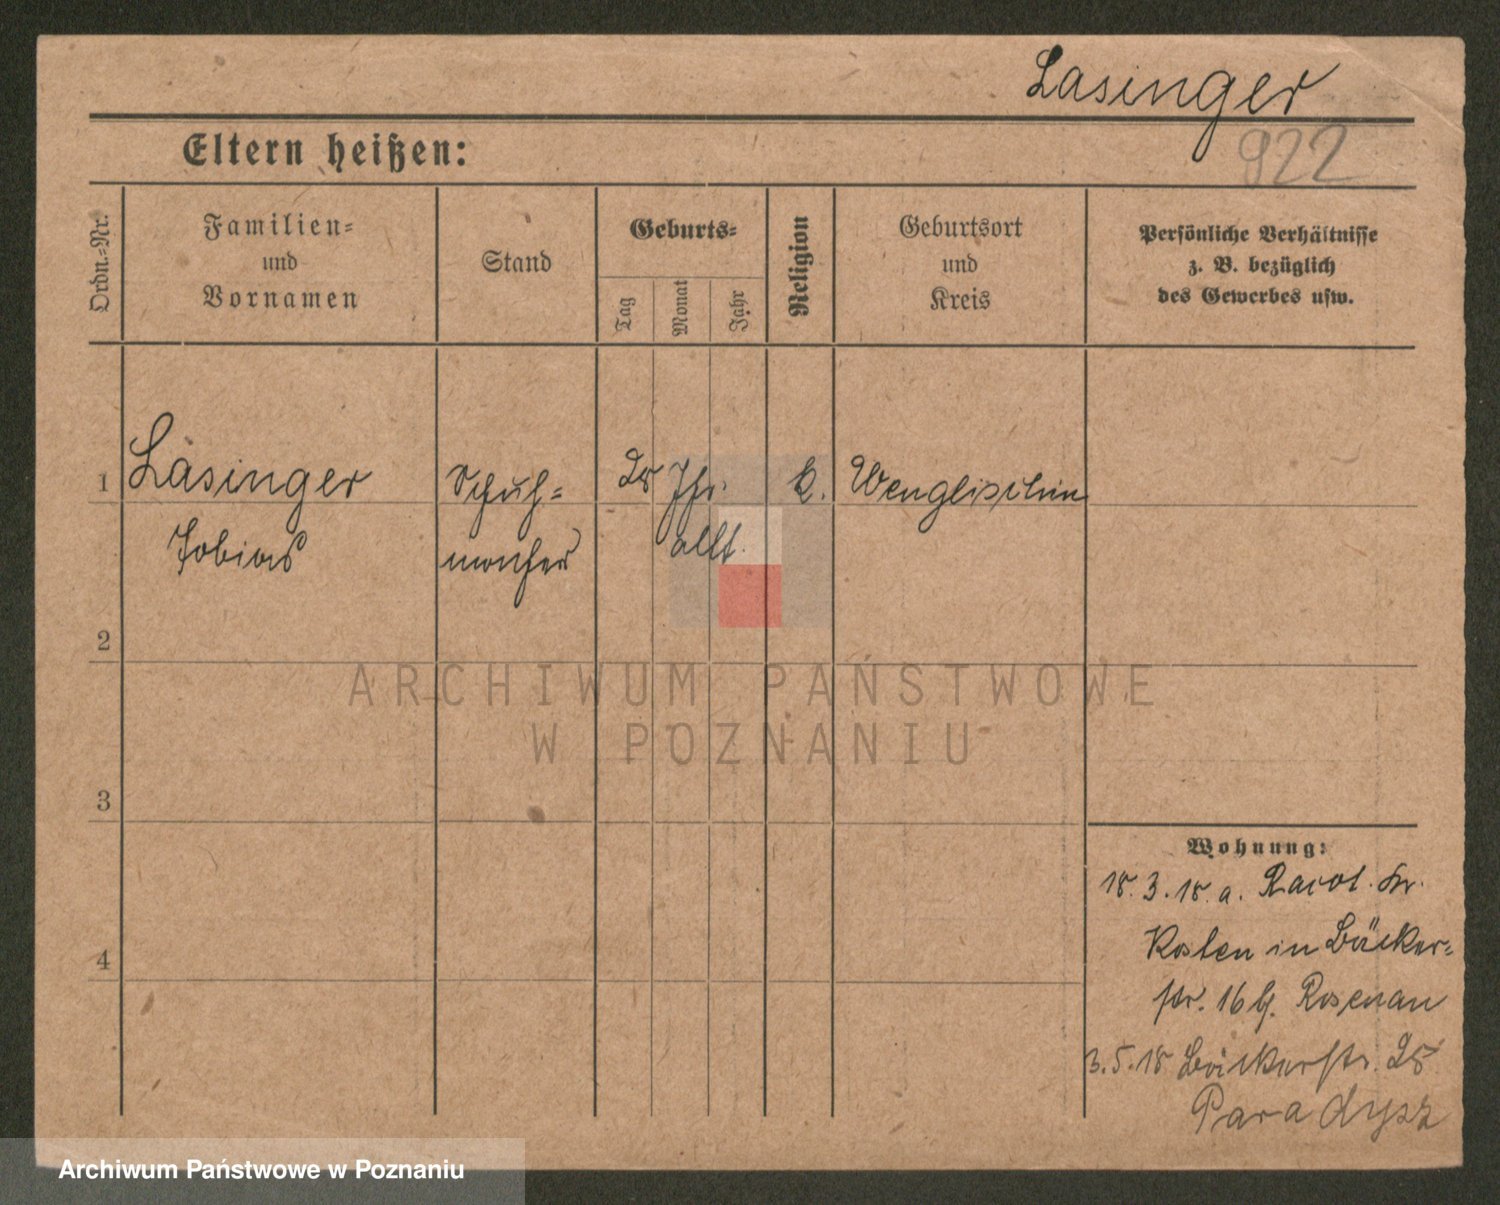 Lasinger
922
Eltern heißen:
Ordn.=Nr.
Familien=
und
Vornamen
Stand
Geburts=
Tag
Monat
Jahr
Religion
Geburtsort
und
Kreis
Persönliche Verhältnisse
z. B. bezüglich
des Gewerbes usw.
1 Lasinger Schuh= 28 Jhr. k.
Tobias macher allt.
2
3
4
Wohnung:
18.3.18. a. Racot. Kr.
Kosten in Bäcker=
str. 16 b. Rosenau
3.5.18 Bäckerstr. 28
Paradysz
ARCHIWUM PAŃSTWOWE
W POZNANIU
Archiwum Państwowe w Poznaniu